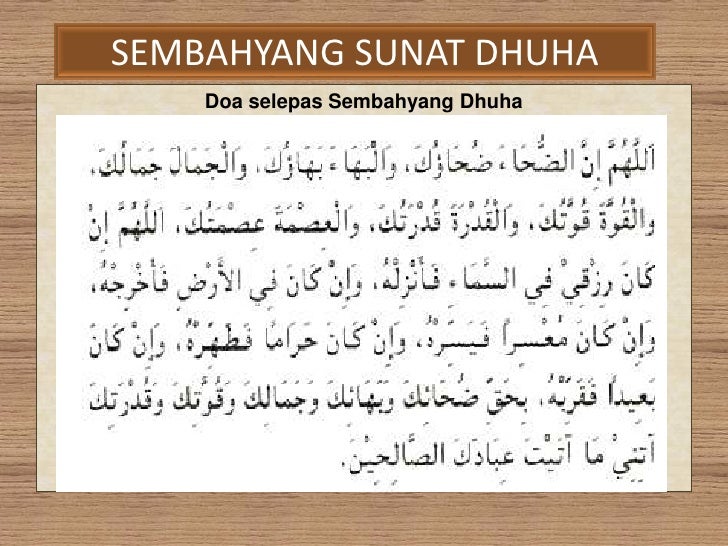 SEMBAHYANG SUNAT DHUHA
Doa selepas Sembahyang Dhuha
اَللّٰهُمَّ اِنَّ الضُّحَاءَ ضُحَاؤُكَ، وَالْبَهَاءَ بَهَاؤُكَ، وَالْجَمَالَ جَمَالُكَ،
وَالْقُوَّةَ قُوَّتُكَ، وَالْقُدْرَةَ قُدْرَتُكَ، وَالْعِصْمَةَ عِصْمَتُكَ، اَللّٰهُمَّ اِنْ
كَانَ رِزْقِيْ فِي السَّمَاءِ فَأَنْزِلْهُ، وَاِنْ كَانَ فِي الْأَرْضِ فَأَخْرِجْهُ،
وَاِنْ كَانَ مُعْسِراً فَيَسِّرْهُ، وَاِنْ كَانَ حَرَاماً فَطَهِّرْهُ، وَاِنْ كَانَ
بَعِيداً فَقَرِّبْهُ، بِحَقِّ ضُحَائِكَ وَبَهَائِكَ وَجَمَالِكَ وَقُوَّتِكَ وَقُدْرَتِكَ
آتِنِيْ مَا آتَيْتَ عِبَادَكَ الصَّالِحِيْنَ.